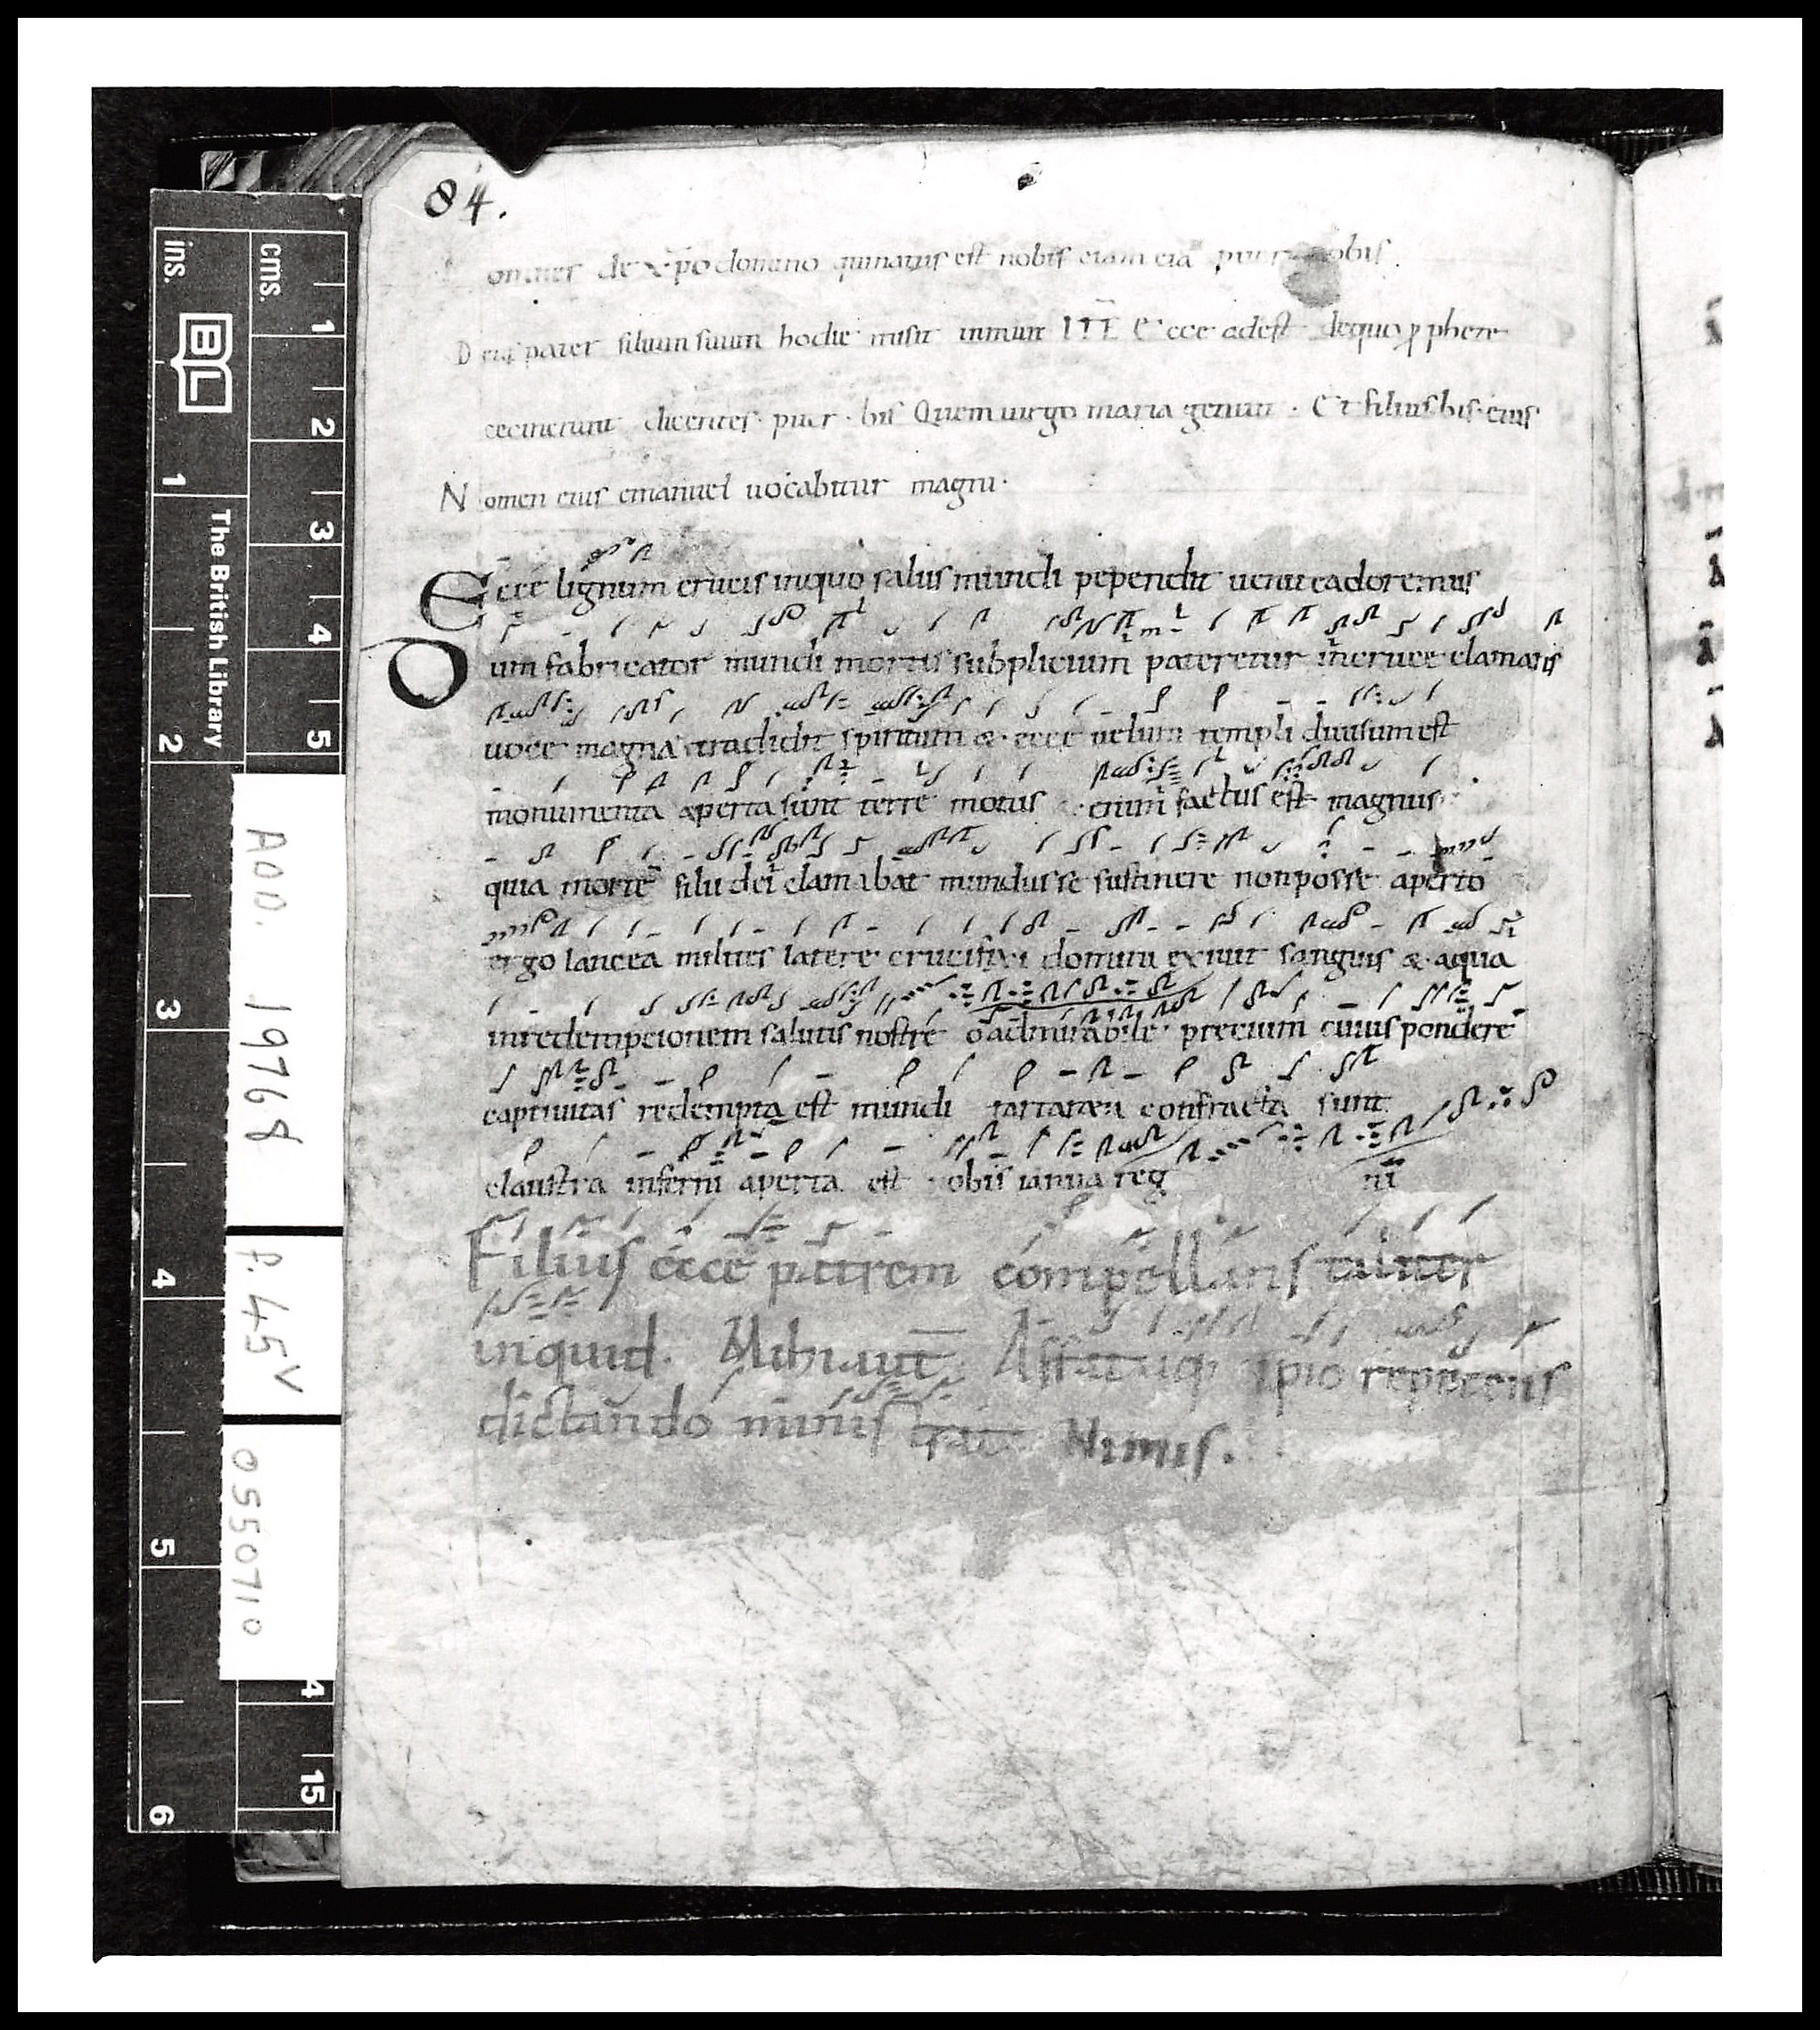 84.
de xp̄o domino qui natus est nobis eiam eia puer nobis
Deus pater filium suum hodie misit in mun III Ecce adest de quo ꝓphete
cecinerunt dicentes puer · bis Quem uirgo maria genuit · Et filius bis · eius
Nomen eius emanuel uocabitur magni ·
Ecce lignum crucis inquo salus mundi pependit uenite adoremus
Dum fabricator mundi mortis subplicium pateretur incruce clamans
uoce magna tradidit spiritum & · ecce uelum templi diuisum est
monumenta aperta sunt terre motus enim factus est magnus
quia morte filii dei clamabat mundus se sustinere non posse aperto
ergo lancea milites latere crucifixi domini exiuit sanguis & aqua
inredempcionem salutis nostre o admirabile · precium cuius pondere
captiuitas redempta est mundi tartarea confracta sunt
claustra inferni aperta est nobis ianua reg ni
Filius ecce patrem compellans taliter
inquid. pio repetens
dictando minis Nimis.
ins. cms.
BL The British Library
1 2 3 4 5 6
1 2 3 4 5 15
ADD. 19768
f. 45v
0550710